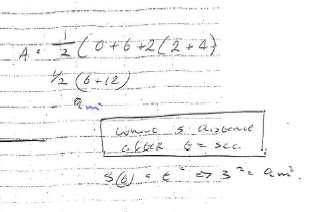 A = 1/2 ( 0+6+2(2+4)
1/2 (6+12)
9 m²
what s distance
after t = sec
S(t) = t² => 3² = 9 m².